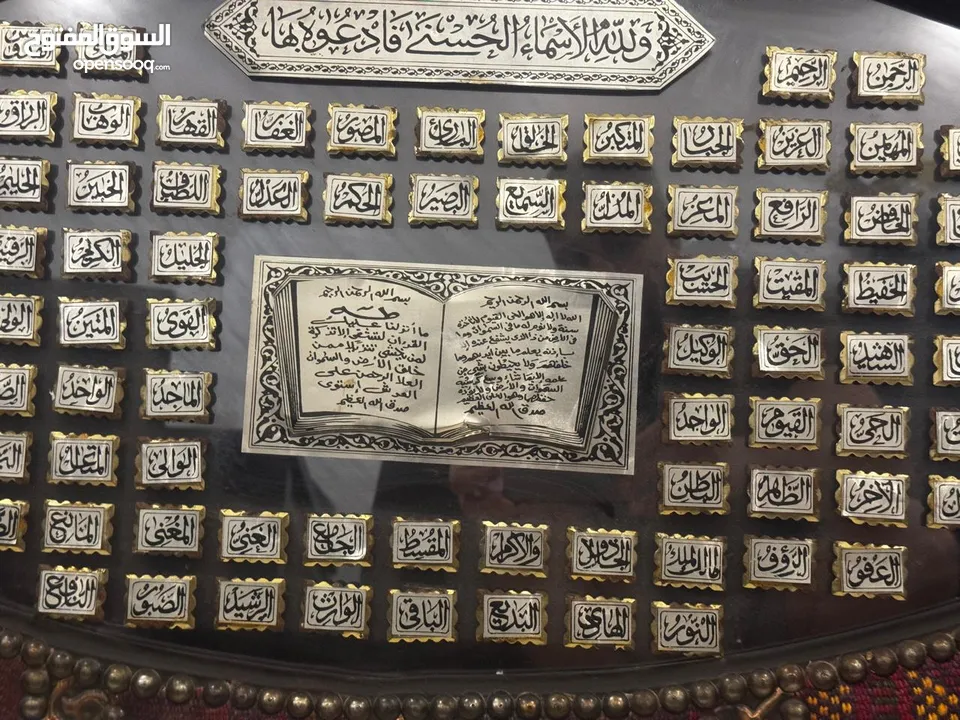 السوق المفتوح
opensooq.com
ولله الأسماء الحسنى فادعوه بها
الرحمن الرحيم
المهيمن العزيز الجبار المتكبر الخالق الباري المصور الغفار القهار الوهاب الرزاق
الخافض الرافع المعز المذل السميع البصير الحكم العدل اللطيف الخبير الحليم
الحفيظ المقيت الحسيب
الجليل الكريم الرقيب
الشهيد الحق الوكيل
القوي المتين
الحي القيوم الواحد
الماجد الواحد
الآخر الظاهر الباطن
الوالي المتعال
العفو الرؤف مالك الملك ذو الجلال والاكرام المقسط الجامع الغني المغني المانع
النور الهادي البديع الباقي الوارث الرشيد الصبور النافع
بسم الله الرحمن الرحيم
الله لا إله إلا هو الحي القيوم لا تأخذه
سنة ولا نوم له ما في السموات وما
في الأرض من ذا الذي يشفع عنده إلا
بإذنه يعلم ما بين أيديهم وما
خلفهم ولا يحيطون بشيء من
علمه إلا بما شاء وسع كرسيه
السموات والأرض ولا يؤده
حفظهما وهو العلي العظيم
صدق الله العظيم
بسم الله الرحمن الرحيم
طه
ما أنزلنا عليك
القرآن لتشقى إلا تذكرة
لمن يخشى تنزيلا ممن
خلق الأرض والسموات
العلا الرحمن على
العرش استوى
صدق الله العظيم